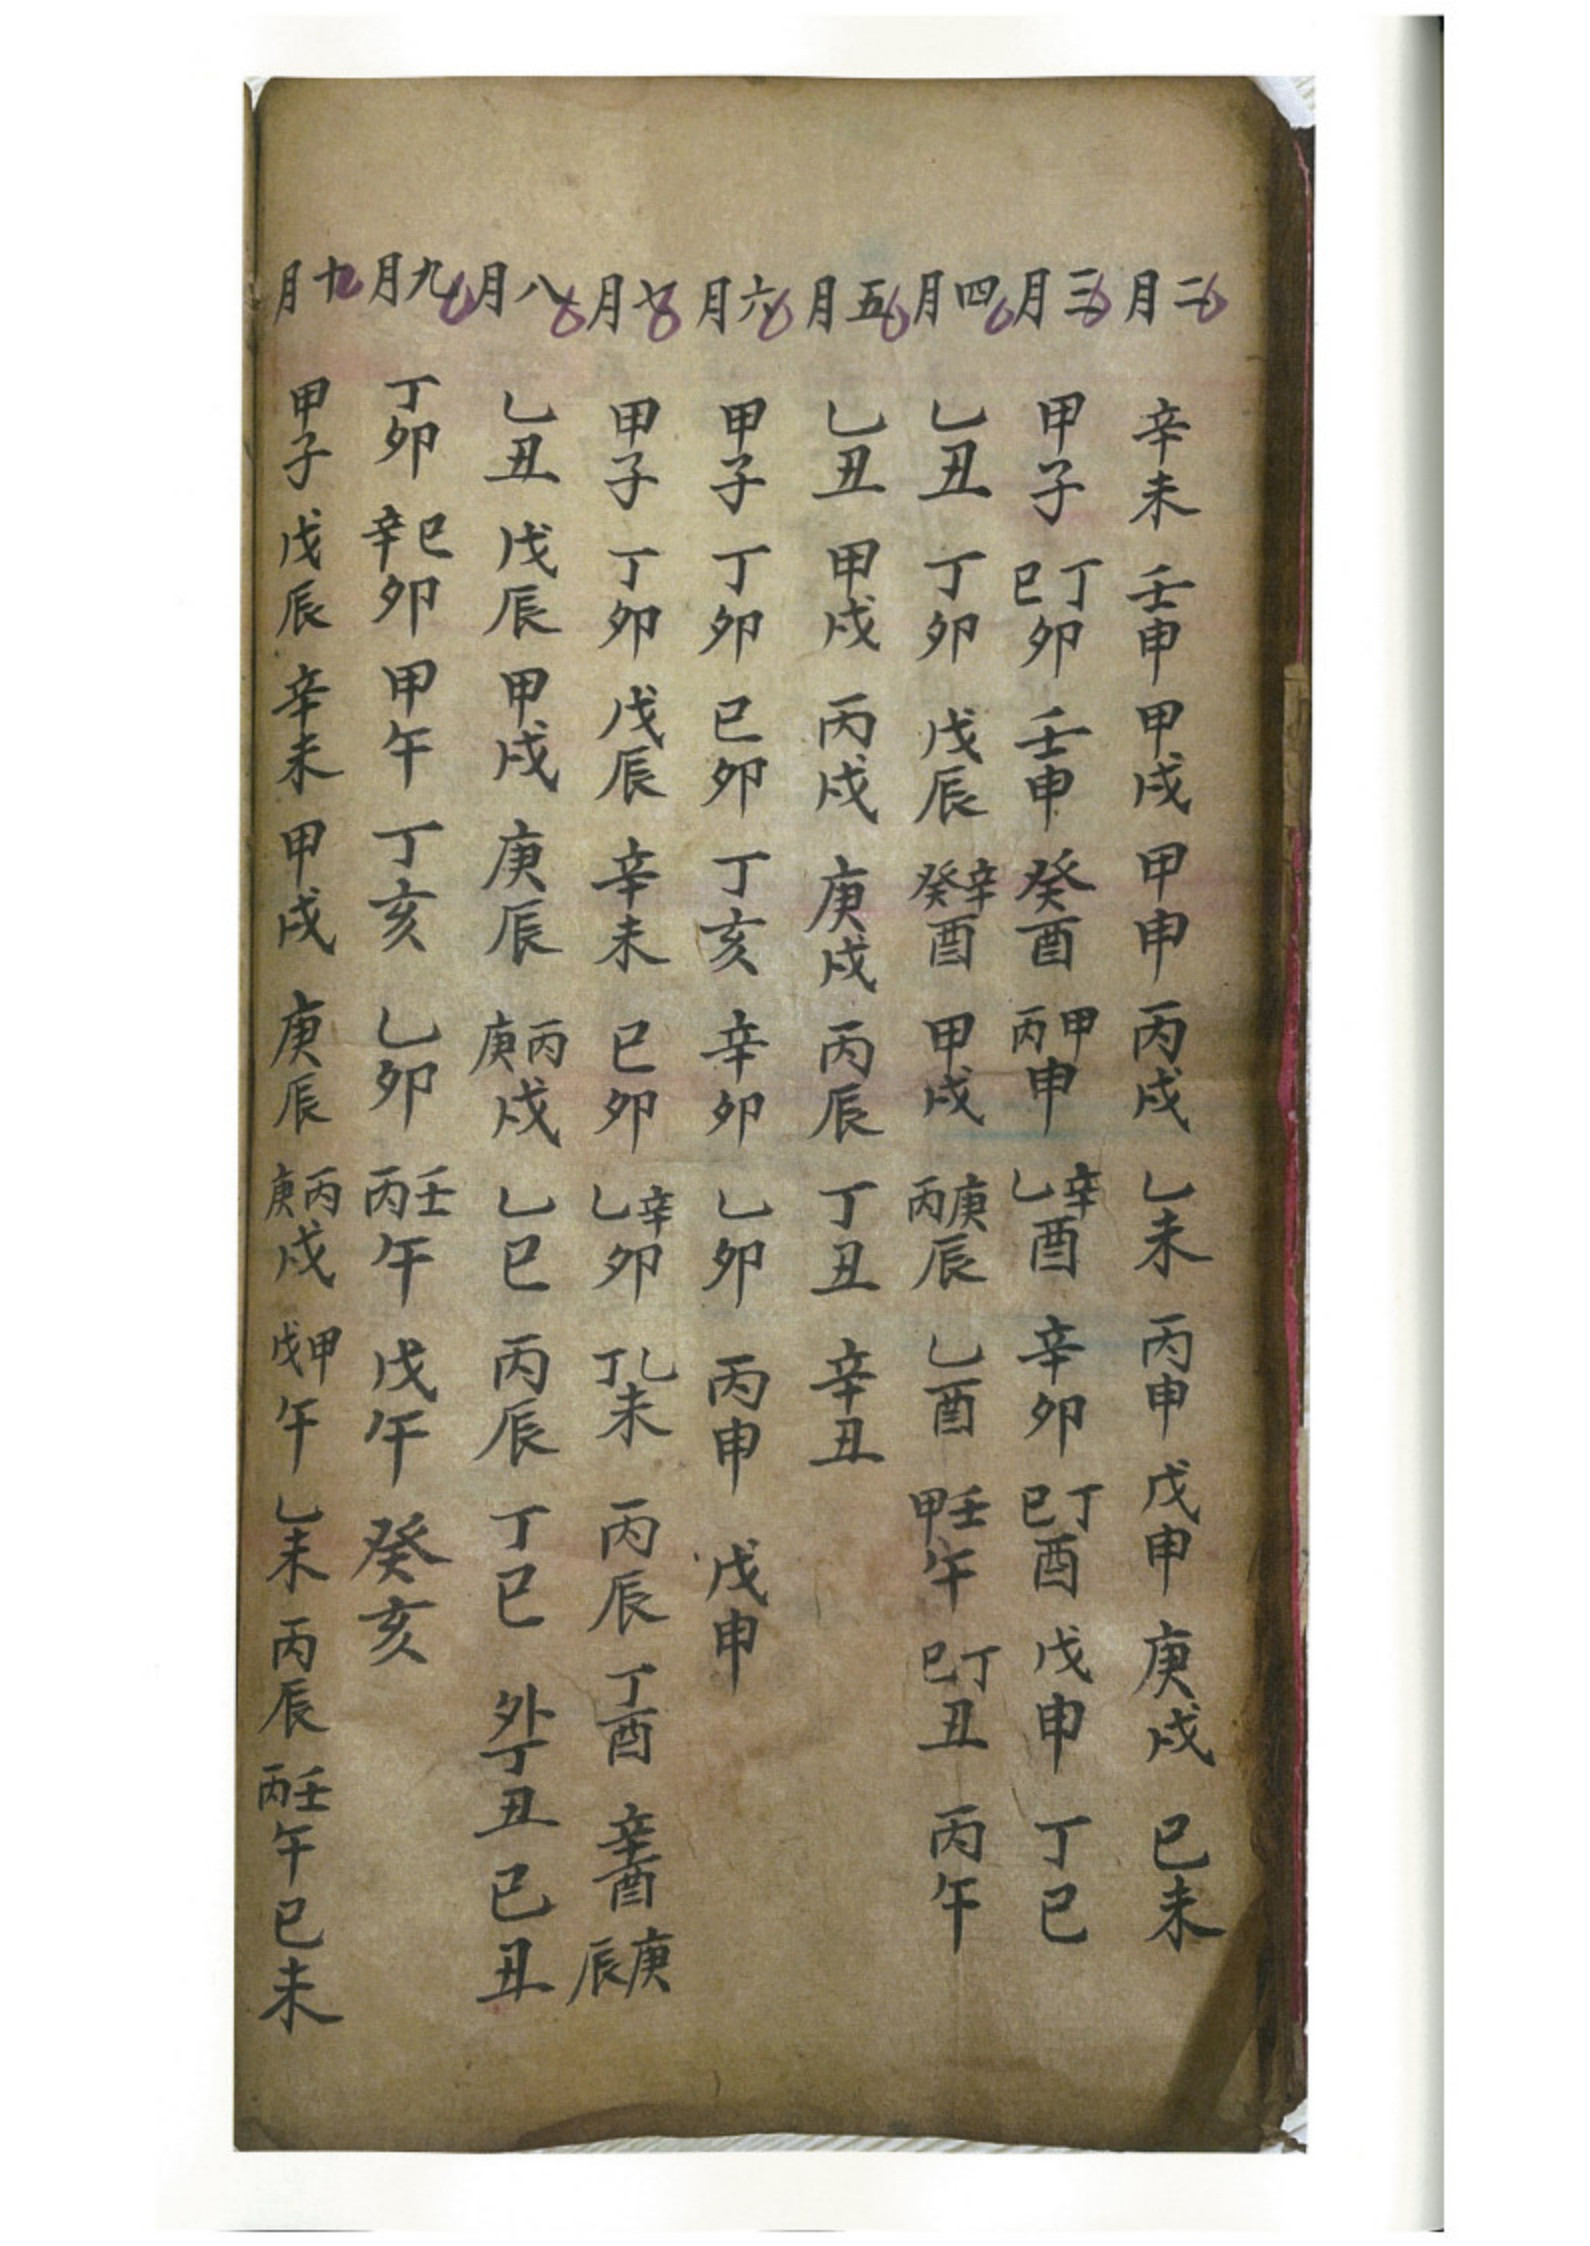 二月 辛未 壬申 甲戌 甲申 丙戌 乙未 丙申 戊申 庚戌 巳未
三月 甲子 丁巳卯 壬申 癸酉 甲丙申 辛乙酉 辛卯 丁巳酉 戊申 丁巳
四月 乙丑 丁卯 戊辰 辛癸酉 甲戌 庚丙辰 乙酉 壬甲午 丁巳丑 丙午
五月 乙丑 甲戌 丙戌 庚戌 丙辰 丁丑 辛丑
六月 甲子 丁卯 巳卯 丁亥 辛卯 乙卯 丙申 戊申
七月 甲子 丁卯 戊辰 辛未 巳卯 辛乙卯 乙丁未 丙辰 丁酉 辛酉 庚辰
八月 乙丑 戊辰 甲戌 庚辰 丙庚戌 乙巳 丙辰 丁巳 外丁丑 巳丑
九月 丁卯 巳辛卯 甲午 丁亥 乙卯 壬丙午 戊午 癸亥
十月 甲子 戊辰 辛未 甲戌 庚辰 丙庚戌 甲戊午 乙未 丙辰 壬丙午 巳未